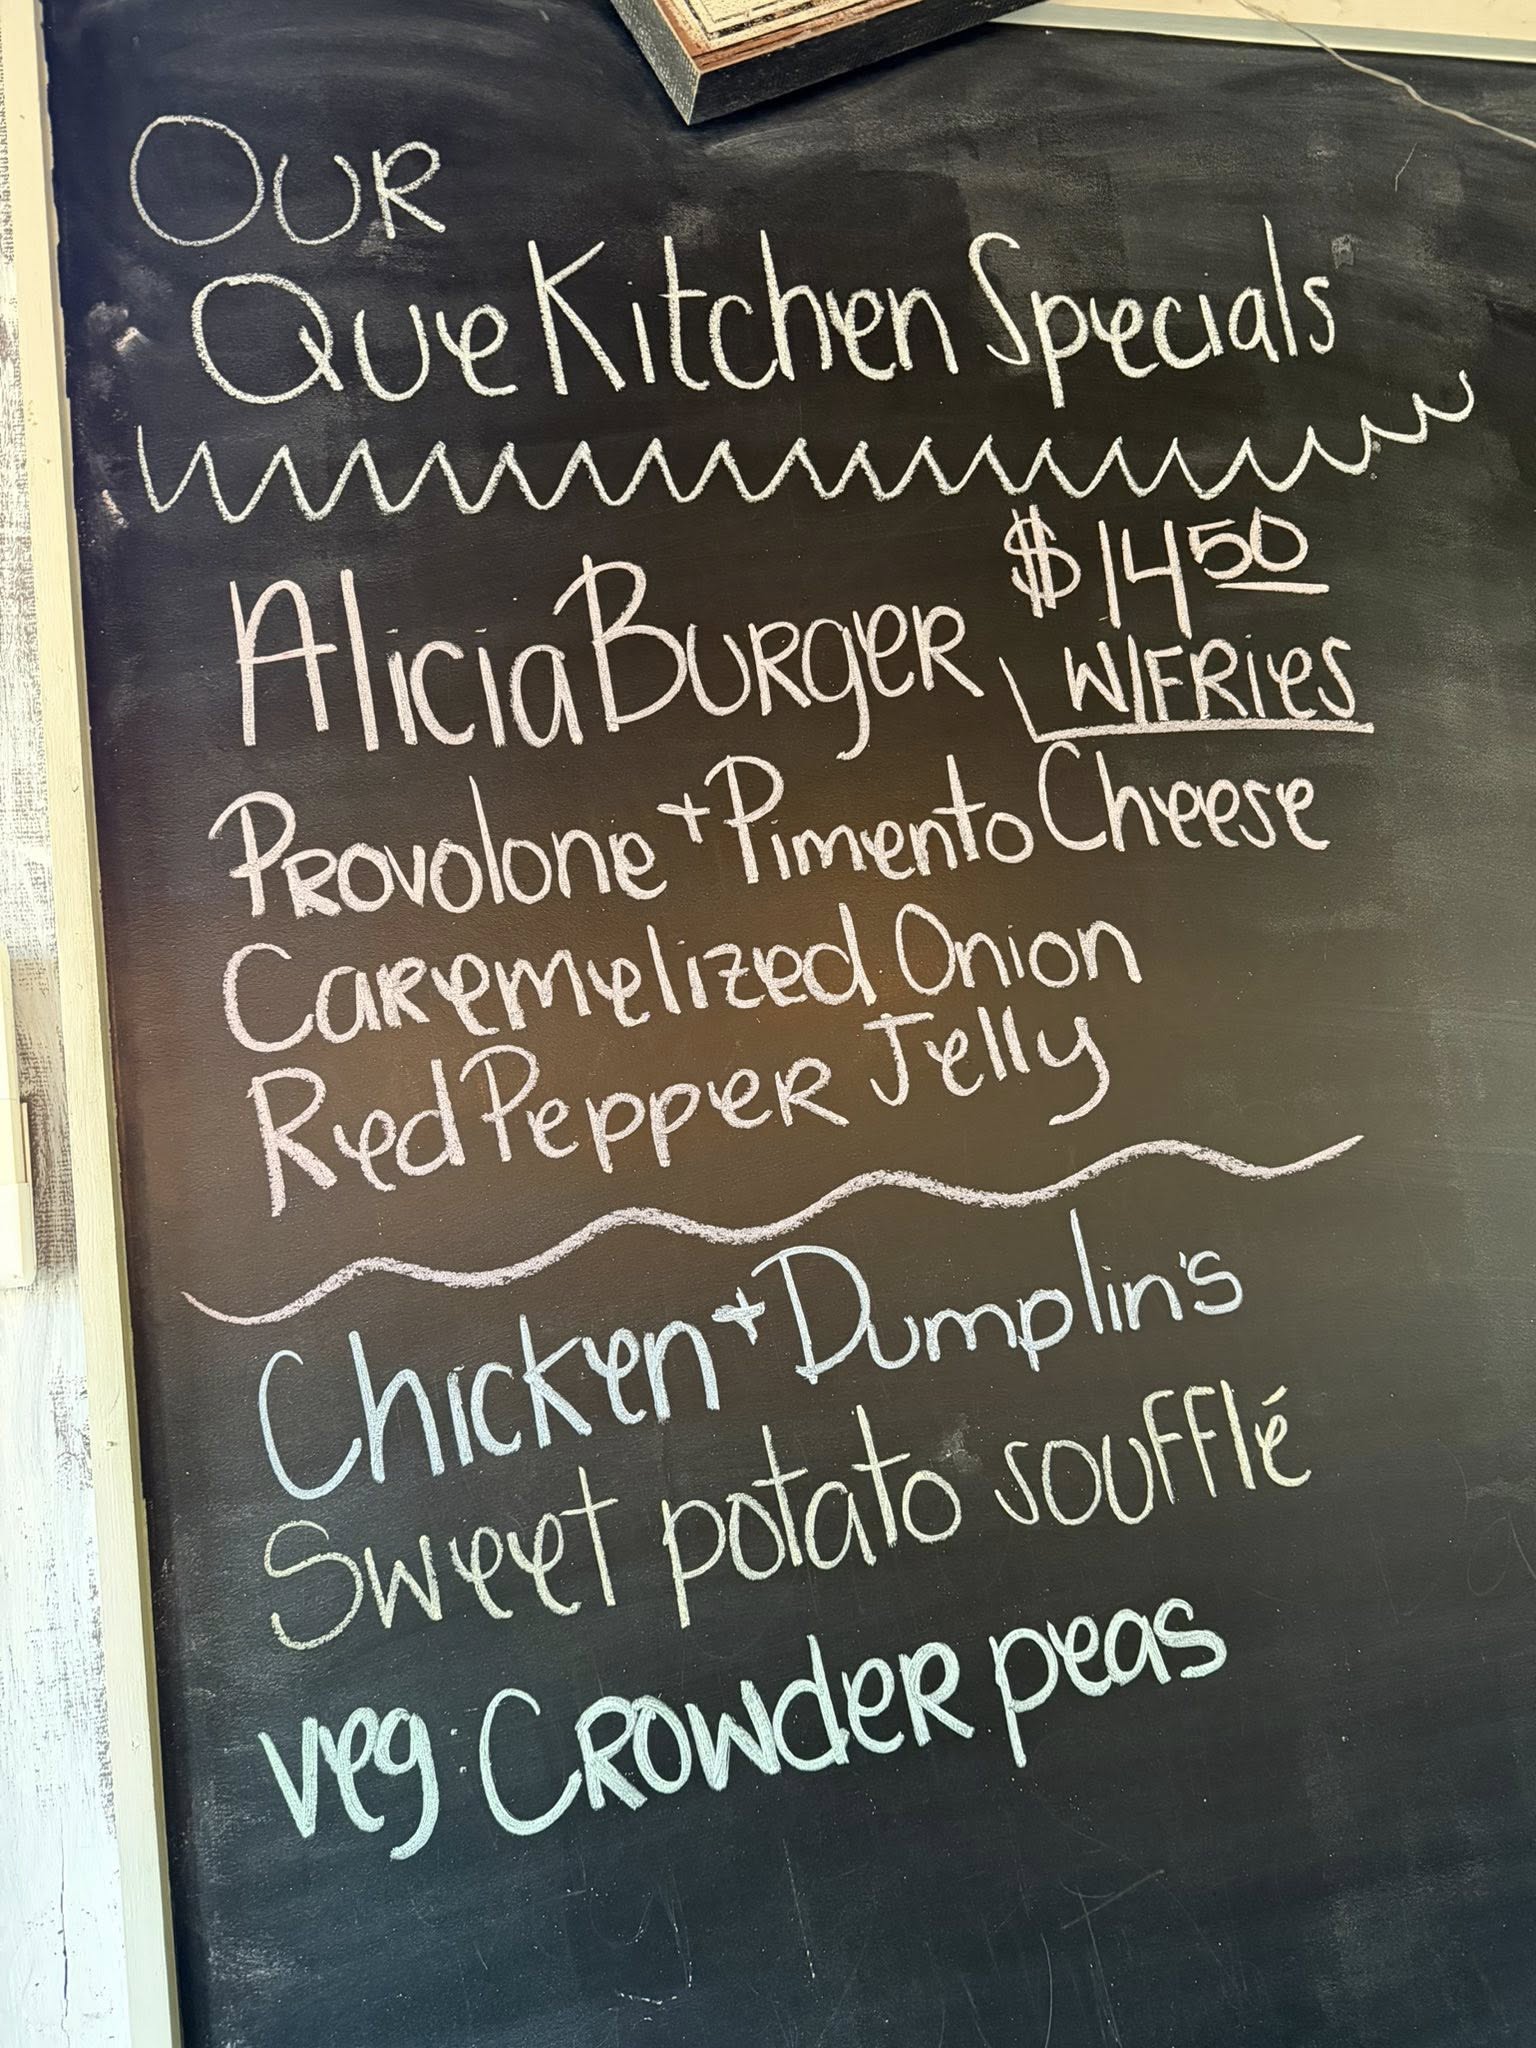 OUR
Que Kitchen Specials
Alicia Burger $14.50
W/FRies
Provolone + Pimento Cheese
Caremelized Onion
Red Pepper Jelly
Chicken + Dumplin's
Sweet potato soufflé
veg: Crowder peas